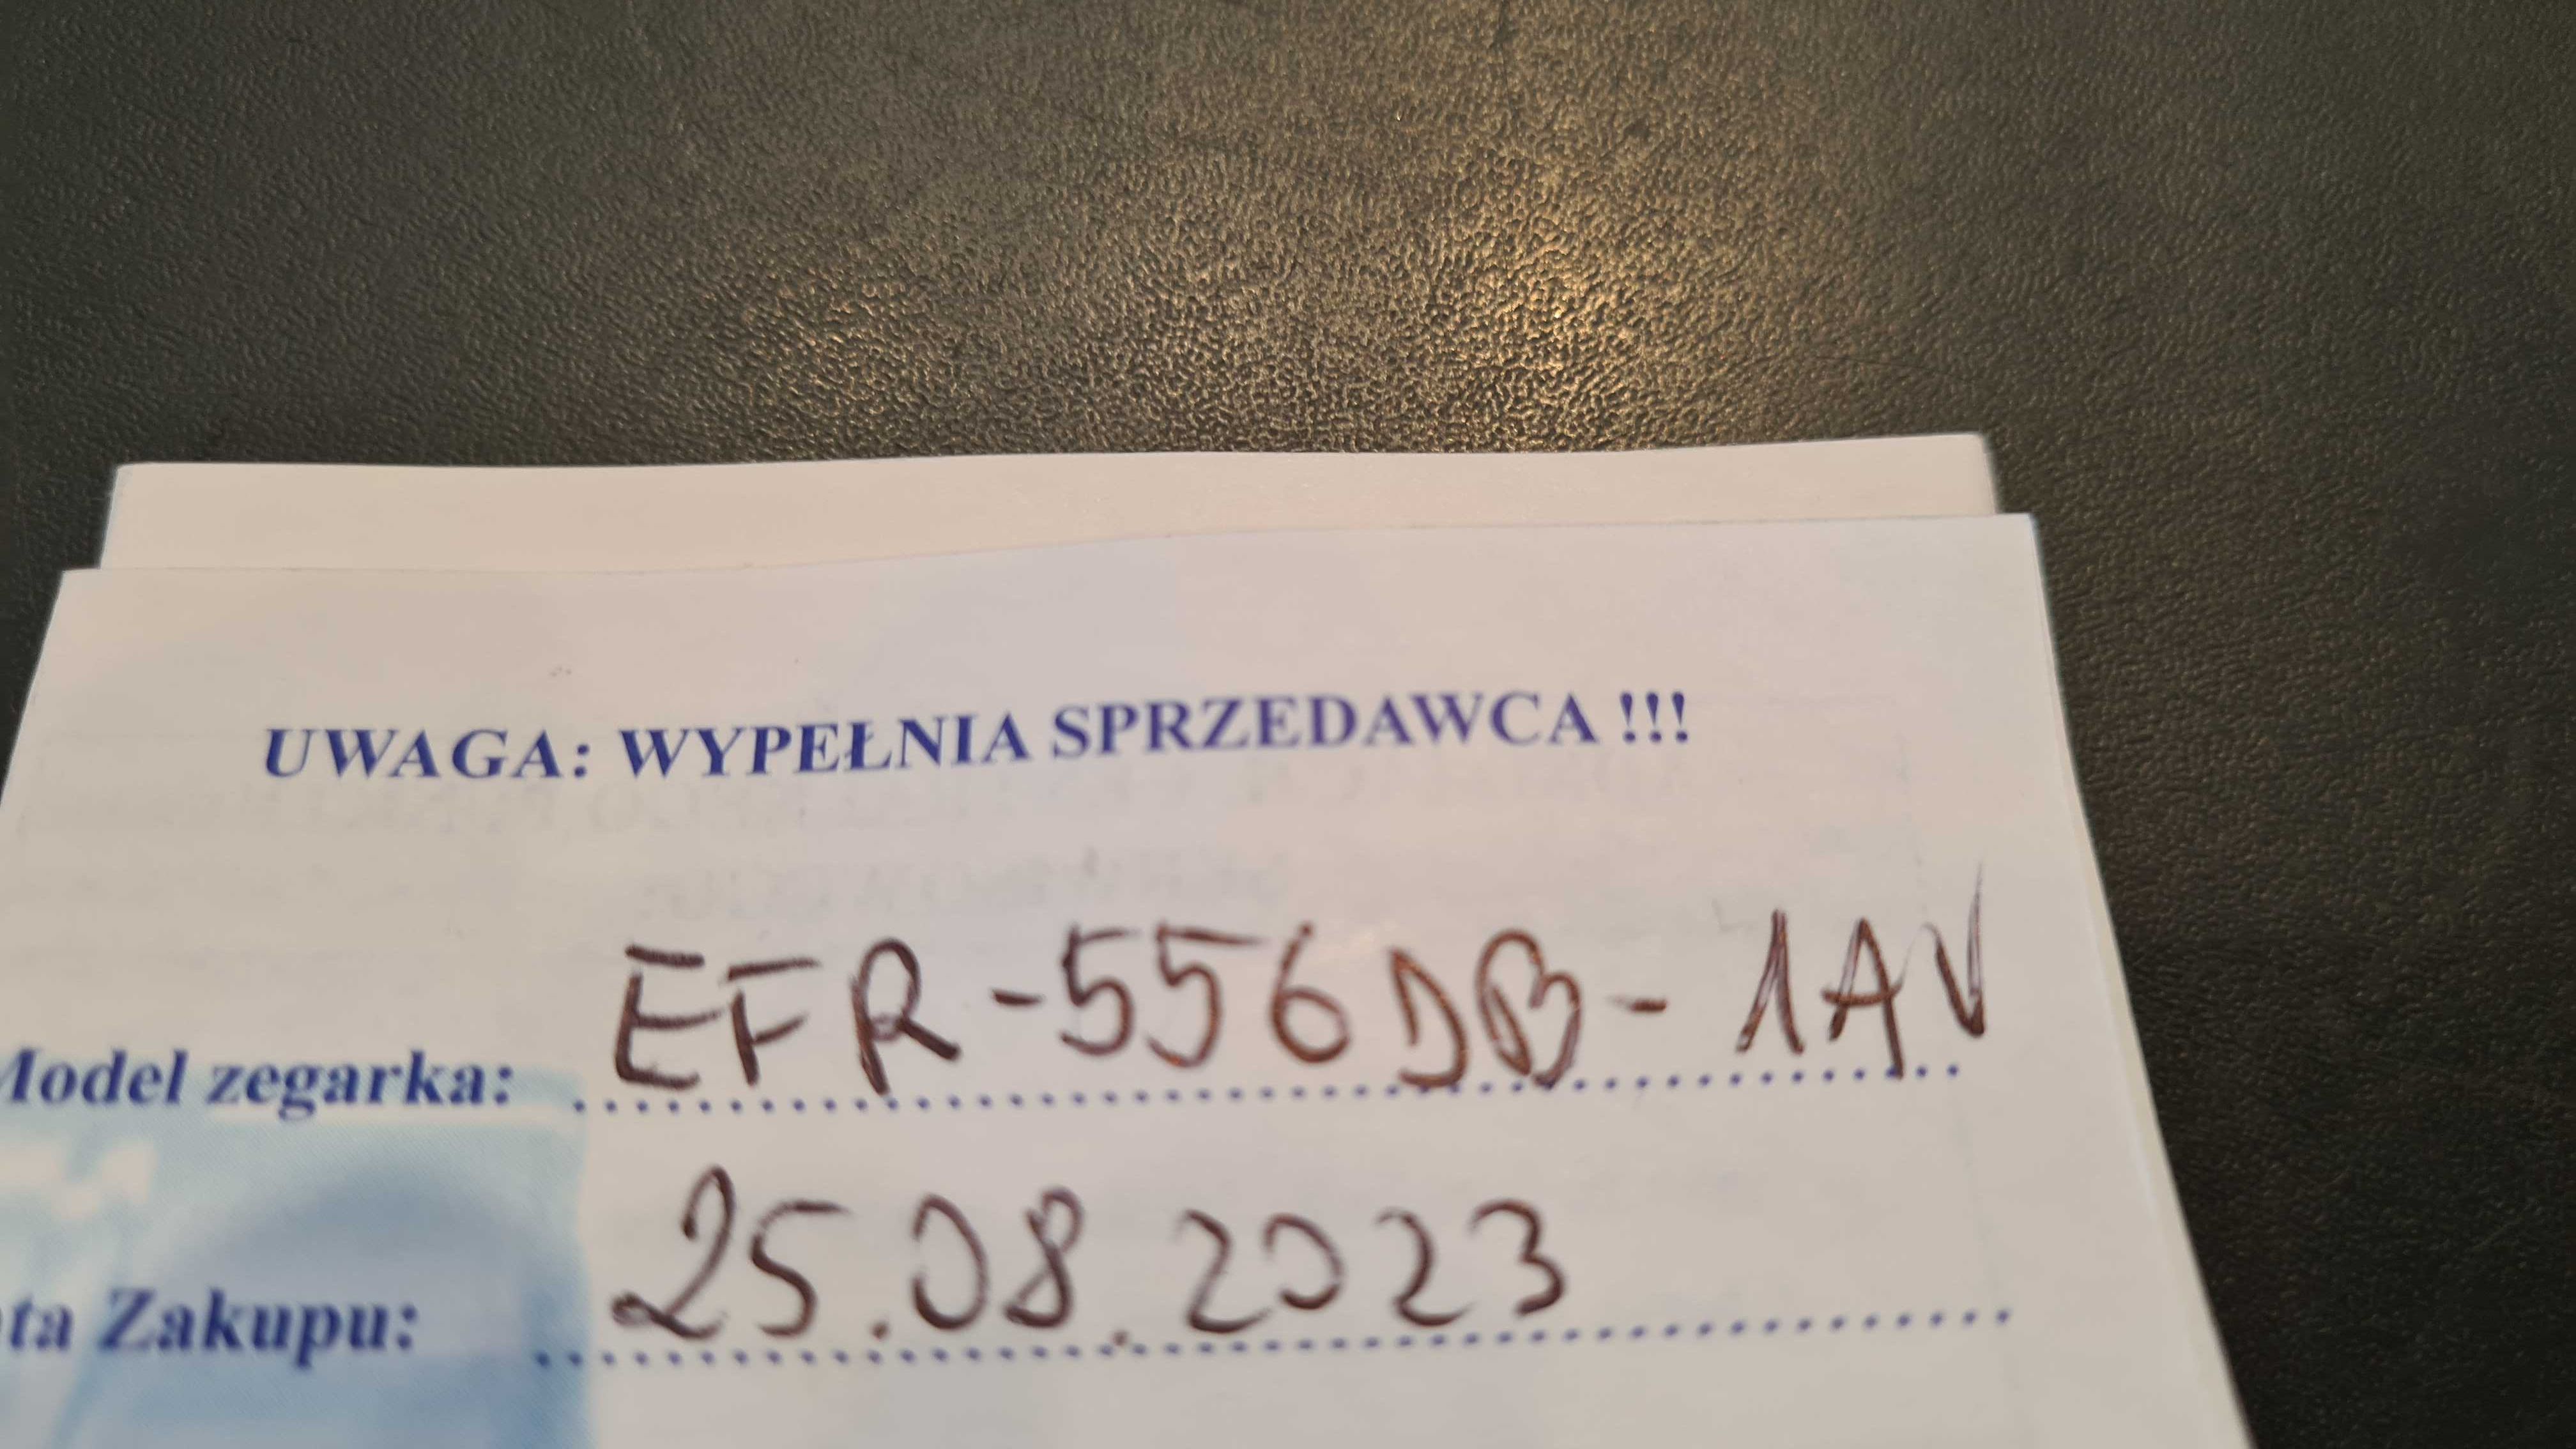 UWAGA: WYPEŁNIA SPRZEDAWCA !!!
Model zegarka: EFR-556DB-1AV
ta Zakupu: 25.08.2023